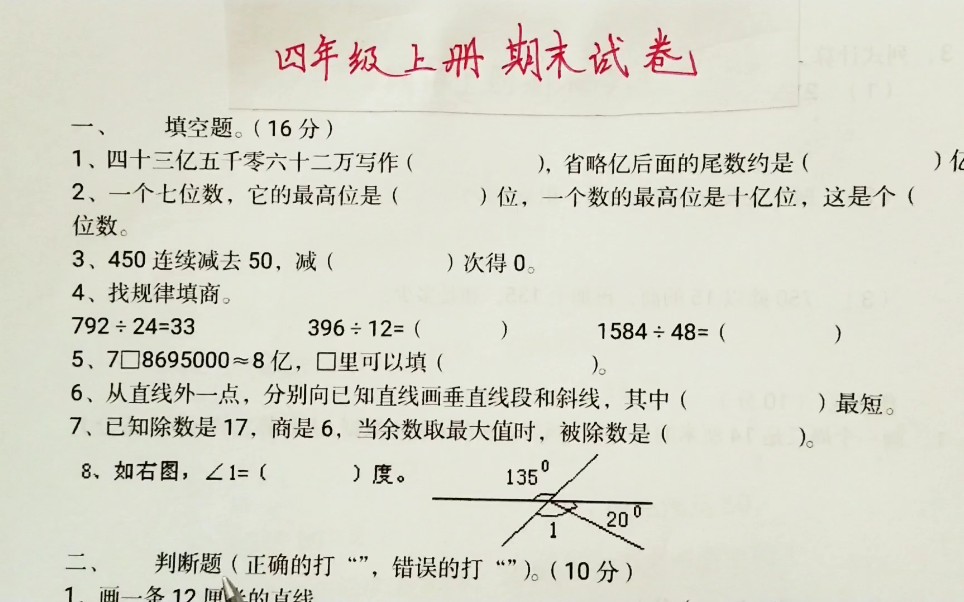 四年级上册 期末试卷
一、 填空题。（16 分）
1、四十三亿五千零六十二万写作（ ），省略亿后面的尾数约是（ ）亿
2、一个七位数，它的最高位是（ ）位，一个数的最高位是十亿位，这是个（
位数。
3、450 连续减去 50，减（ ）次得 0。
4、找规律填商。
792÷24=33 396÷12=（ ） 1584÷48=（ ）
5、7□8695000≈8 亿，□里可以填（ ）。
6、从直线外一点，分别向已知直线画垂直线段和斜线，其中（ ）最短。
7、已知除数是 17，商是 6，当余数取最大值时，被除数是（ ）。
8、如右图，∠1=（ ）度。
135⁰
20⁰
1
二、 判断题（正确的打“”，错误的打“”）。（10 分）
1、画一条 12 厘米的直线